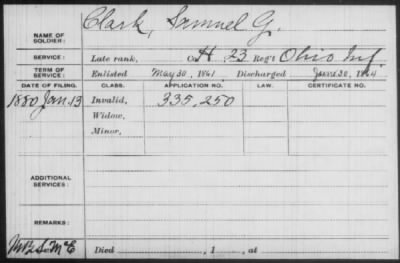 NAME OF SOLDIER: Clark, Samuel G.
SERVICE: Late rank, Co. H, 23 Reg't Ohio Inf.
TERM OF SERVICE: Enlisted May 30, 1861 Discharged June 20, 1864
DATE OF FILING. CLASS. APPLICATION NO. LAW. CERTIFICATE NO.
1880 Jan. 13 Invalid, 335,250
Widow,
Minor,
ADDITIONAL SERVICES:
REMARKS:
Died , 1 , at